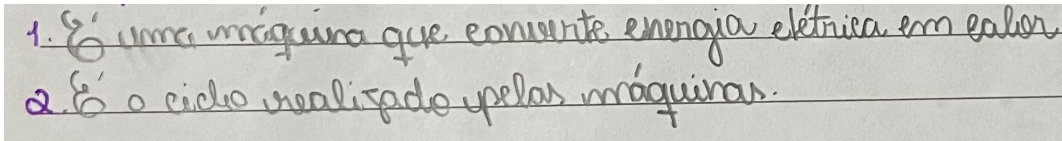 1. É uma máquina que converte energia elétrica em calor
2. É o ciclo realizado pelas máquinas.